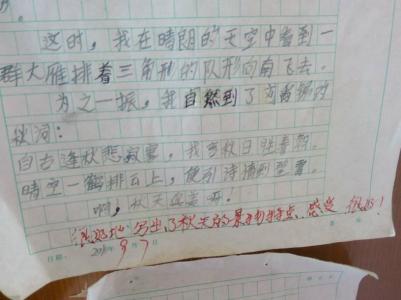 这时，我在晴朗的天空中看到一
群大雁排着三角形的队形向南飞去。
为之一振，我自然到了刘禹锡的
秋词：
自古逢秋悲寂寥，我言秋日胜春朝。
晴空一鹤排云上，便引诗情到碧霄。
啊，秋天
写出了秋天的景物特点，感受 很好！
日期： 9月7